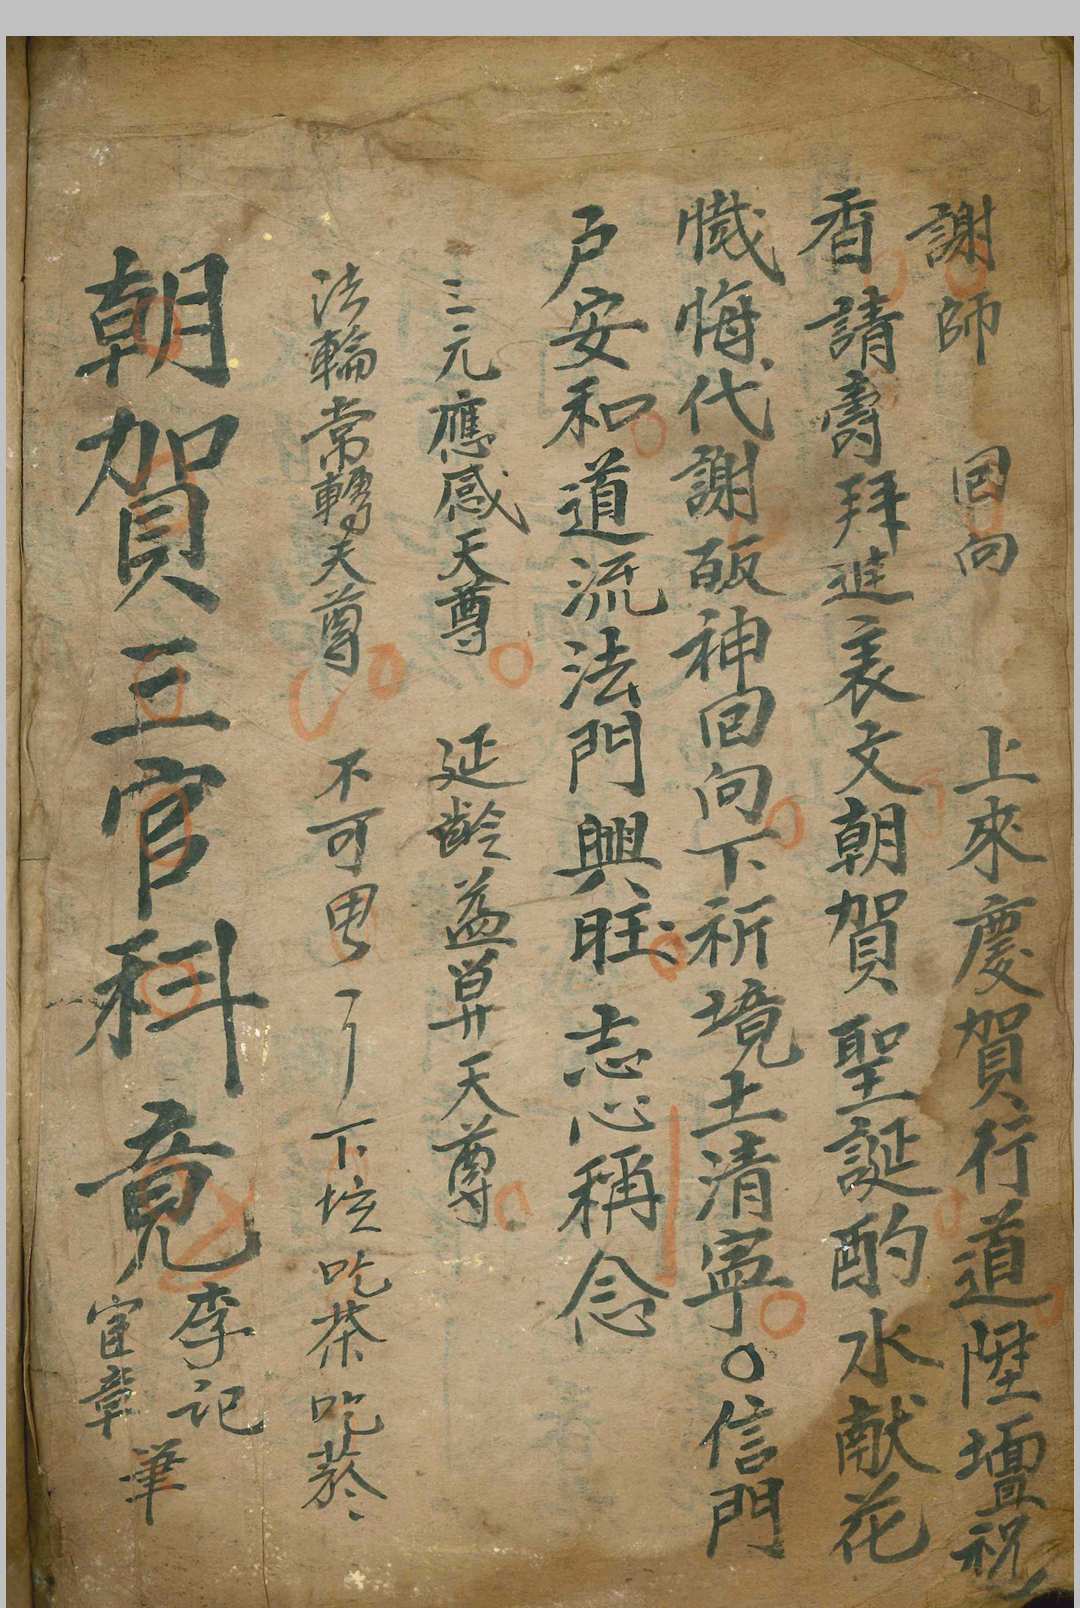 謝師　回向　上來慶賀行道陞壇祝
香請壽拜進表文朝賀聖誕酌水献花
懺悔代謝皈神回向下祈境土清寧○信門
戶安和道流法門興旺志心稱念
三元應感天尊　延齡益算天尊
法輪常轉天尊　不可　了下坛吃茶吃菸
朝賀三官科竟
李記
官章
筆